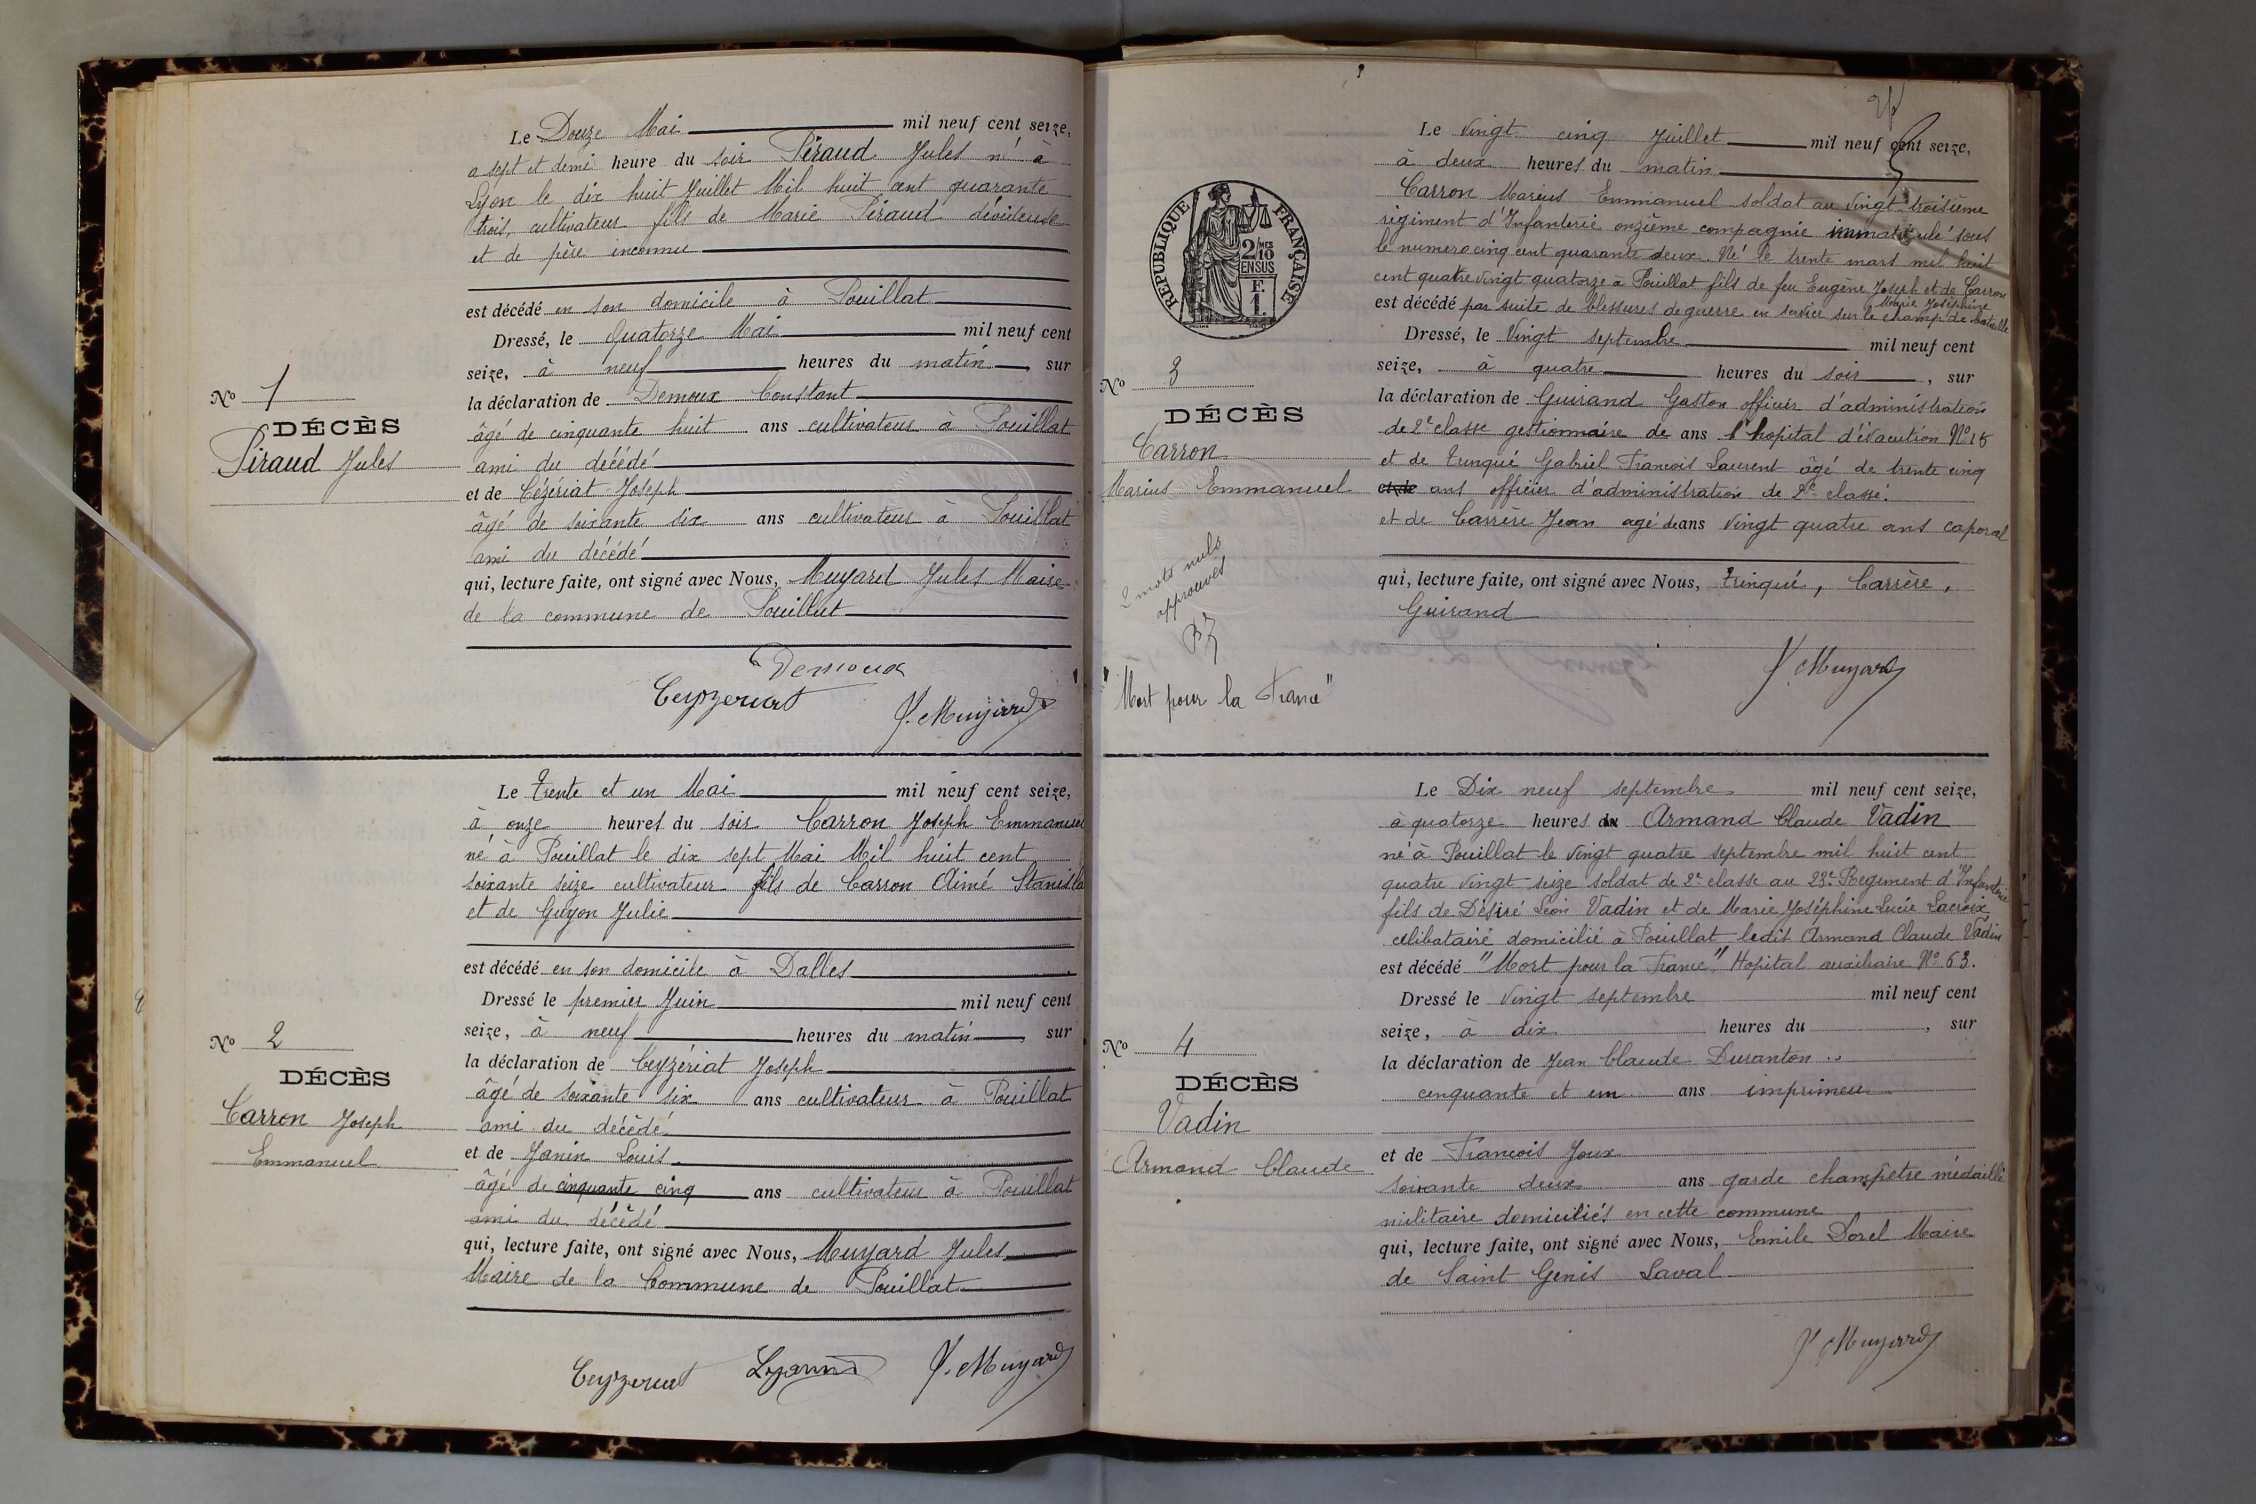 Le Douze Mai mil neuf cent seize,
a sept et demi heure du soir Piraud Jules né à
Lyon le dix huit Juillet Mil huit cent quarante
trois, cultivateur fils de Marie Piraud dévideuse
et de père inconnu
est décédé en son domicile à Pouillat
Dressé, le quatorze Mai mil neuf cent
seize, à neuf heures du matin, sur
la déclaration de Demoux Constant
âgé de cinquante huit ans cultivateur à Pouillat
ami du décédé
et de Cézériat Joseph
âgé de soixante six ans cultivateur à Pouillat
ami du décédé
qui, lecture faite, ont signé avec Nous, Muyard Jules Maire
de la commune de Pouillat
Demoux
Ceyzeriat J. Muyard
No 1
DÉCÈS
Piraud Jules
Le trente et un Mai mil neuf cent seize,
à onze heures du soir Carron Joseph Emmanuel
né à Pouillat le dix sept Mai Mil huit cent
soixante seize cultivateur fils de Carron Aimé Stanislas
et de Guyon Julie
est décédé en son domicile à Dalles
Dressé le premier Juin mil neuf cent
seize, à neuf heures du matin, sur
la déclaration de Ceyzériat Joseph
âgé de soixante six ans cultivateur à Pouillat
ami du décédé
et de Janin Louis
âgé de cinquante cinq ans cultivateur à Pouillat
ami du décédé
qui, lecture faite, ont signé avec Nous, Muyard Jules
Maire de la Commune de Pouillat
Ceyzeriat J. Muyard
No 2
DÉCÈS
Carron Joseph
Emmanuel
Le vingt cinq Juillet mil neuf cent seize,
à deux heures du matin
Carron Marius Emmanuel soldat au vingt troisième
régiment d'Infanterie onzième compagnie immatriculé sous
le numero cinq cent quarante deux. Né le trente mars mil huit
cent quatre vingt quatorze à Pouillat fils de feu Eugène Joseph et de Carron
Marie Joséphine
est décédé par suite de blessures de guerre en service sur le champ de bataille
Dressé, le Vingt septembre mil neuf cent
seize, à quatre heures du soir, sur
la déclaration de Guirand Gaston officier d'administration
de 2e classe gestionnaire de ans l'hopital d'évacution No 15
et de Trinqué Gabriel Francois Laurent âgé de trente cinq
et de ans officier d'administration de 2e classe.
et de Carrère Jean agé de ans vingt quatre ans caporal
qui, lecture faite, ont signé avec Nous, Trinqué, Carrère,
Guirand
J. Muyard
REPUBLIQUE FRANÇAISE
2/10 MES
EN SUS
F.
1.
No 3
DÉCÈS
Carron
Marius Emmanuel
2 mots nuls
approuvés
"Mort pour la France"
Le Dix neuf septembre mil neuf cent seize,
à quatorze heures du Armand Claude Vadin
né à Pouillat le vingt quatre septembre mil huit cent
quatre vingt seize soldat de 2e classe au 23e Regiment d'Infanterie
fils de Désiré Léon Vadin et de Marie Joséphine Lucie Lacroix
célibataire domicilié à Pouillat ledit Armand Claude Vadin
est décédé "Mort pour la France" Hopital auxiliaire No 63.
Dressé le vingt septembre mil neuf cent
seize, à dix heures du , sur
la déclaration de Jean Claude Duranton
cinquante et un ans imprimeur
et de Francois Joux
soixante deux ans garde champêtre médaillé
militaire domiciliés en cette commune
qui, lecture faite, ont signé avec Nous, Emile Dorel Maire
de Saint Genis Laval
J. Muyard
No 4
DÉCÈS
Vadin
Armand Claude